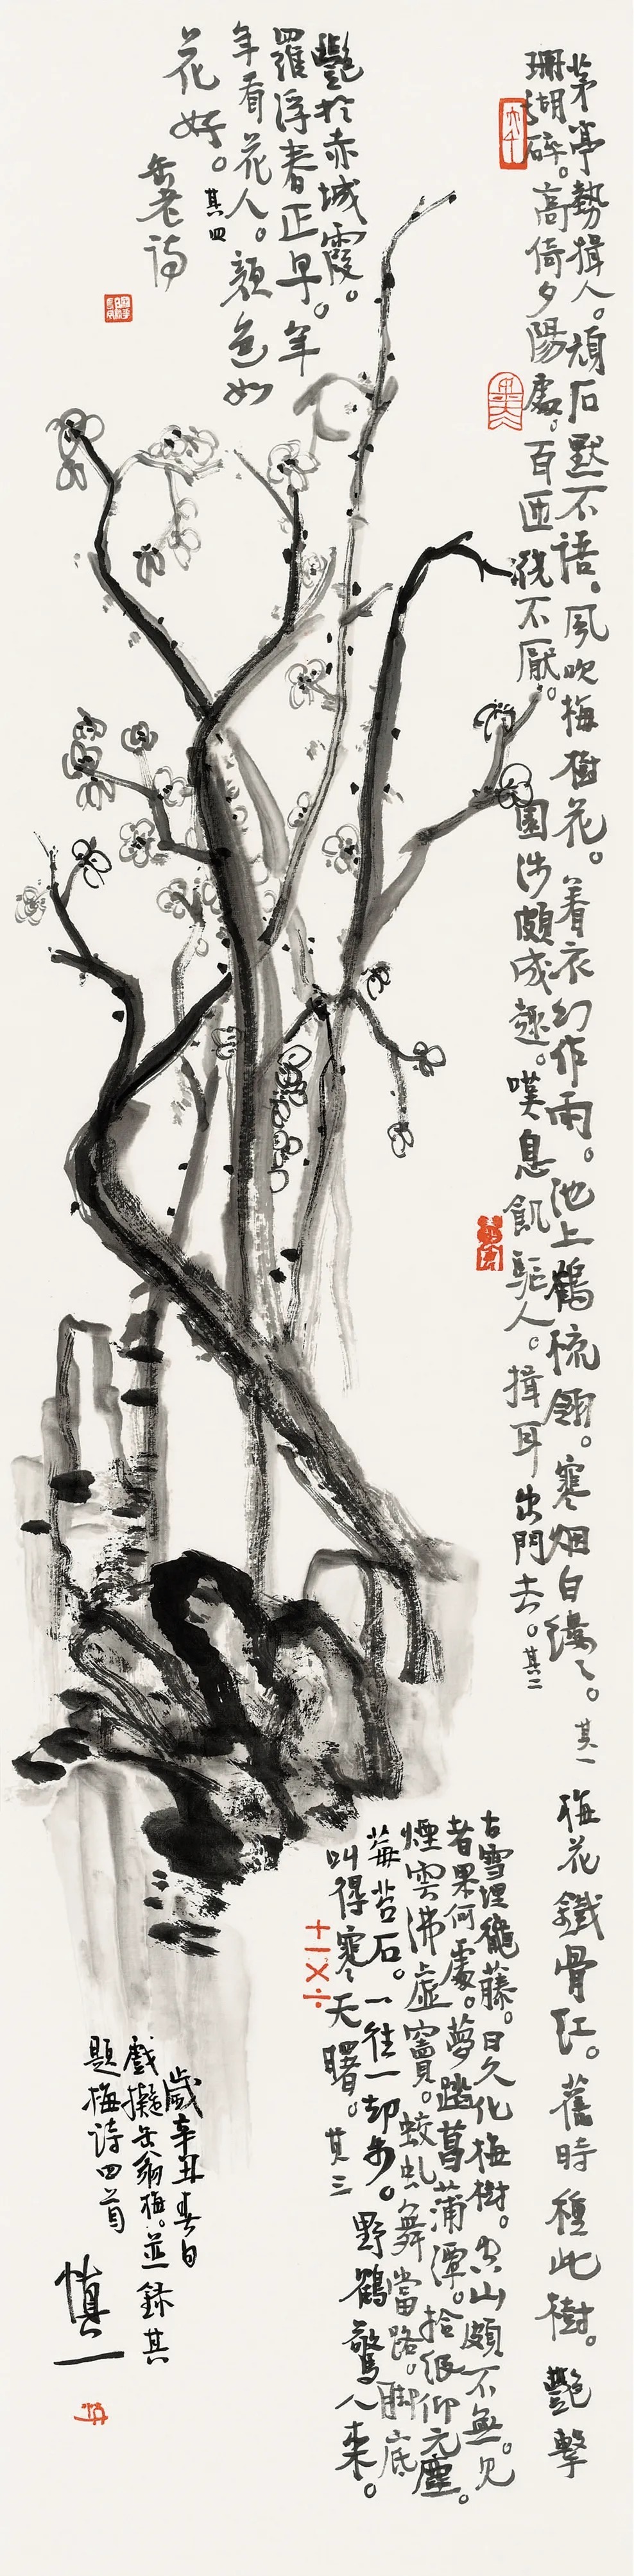 茅亭勢揖人。頑石默不語。風吹梅樹花。着衣幻作雨。池上鶴梳翎。寒烟白縷々。其一 梅花鐵骨紅。舊時種此樹。艷擊
珊瑚碎。高倚夕陽處。百匝繞不厭。園涉頗成趣。嘆息飢驅人。揖耳出門去。其二
古雪埋龍藤。日久化梅樹。空山頗不無。見
者果何處。夢踏菖蒲潭。拾級仰元塵。
煙雲沸虛竇。蛟虬舞當路。脚底
莓苔石。一往一却步。野鶴驚人來。
叫得寒天曙。其三
艷於赤城霞。
羅浮春正早。年
年看花人。顏色如
花好。其四
缶老詩
歲辛丑春日
戲擬缶翁梅。並錄其
題梅詩四首
慎一